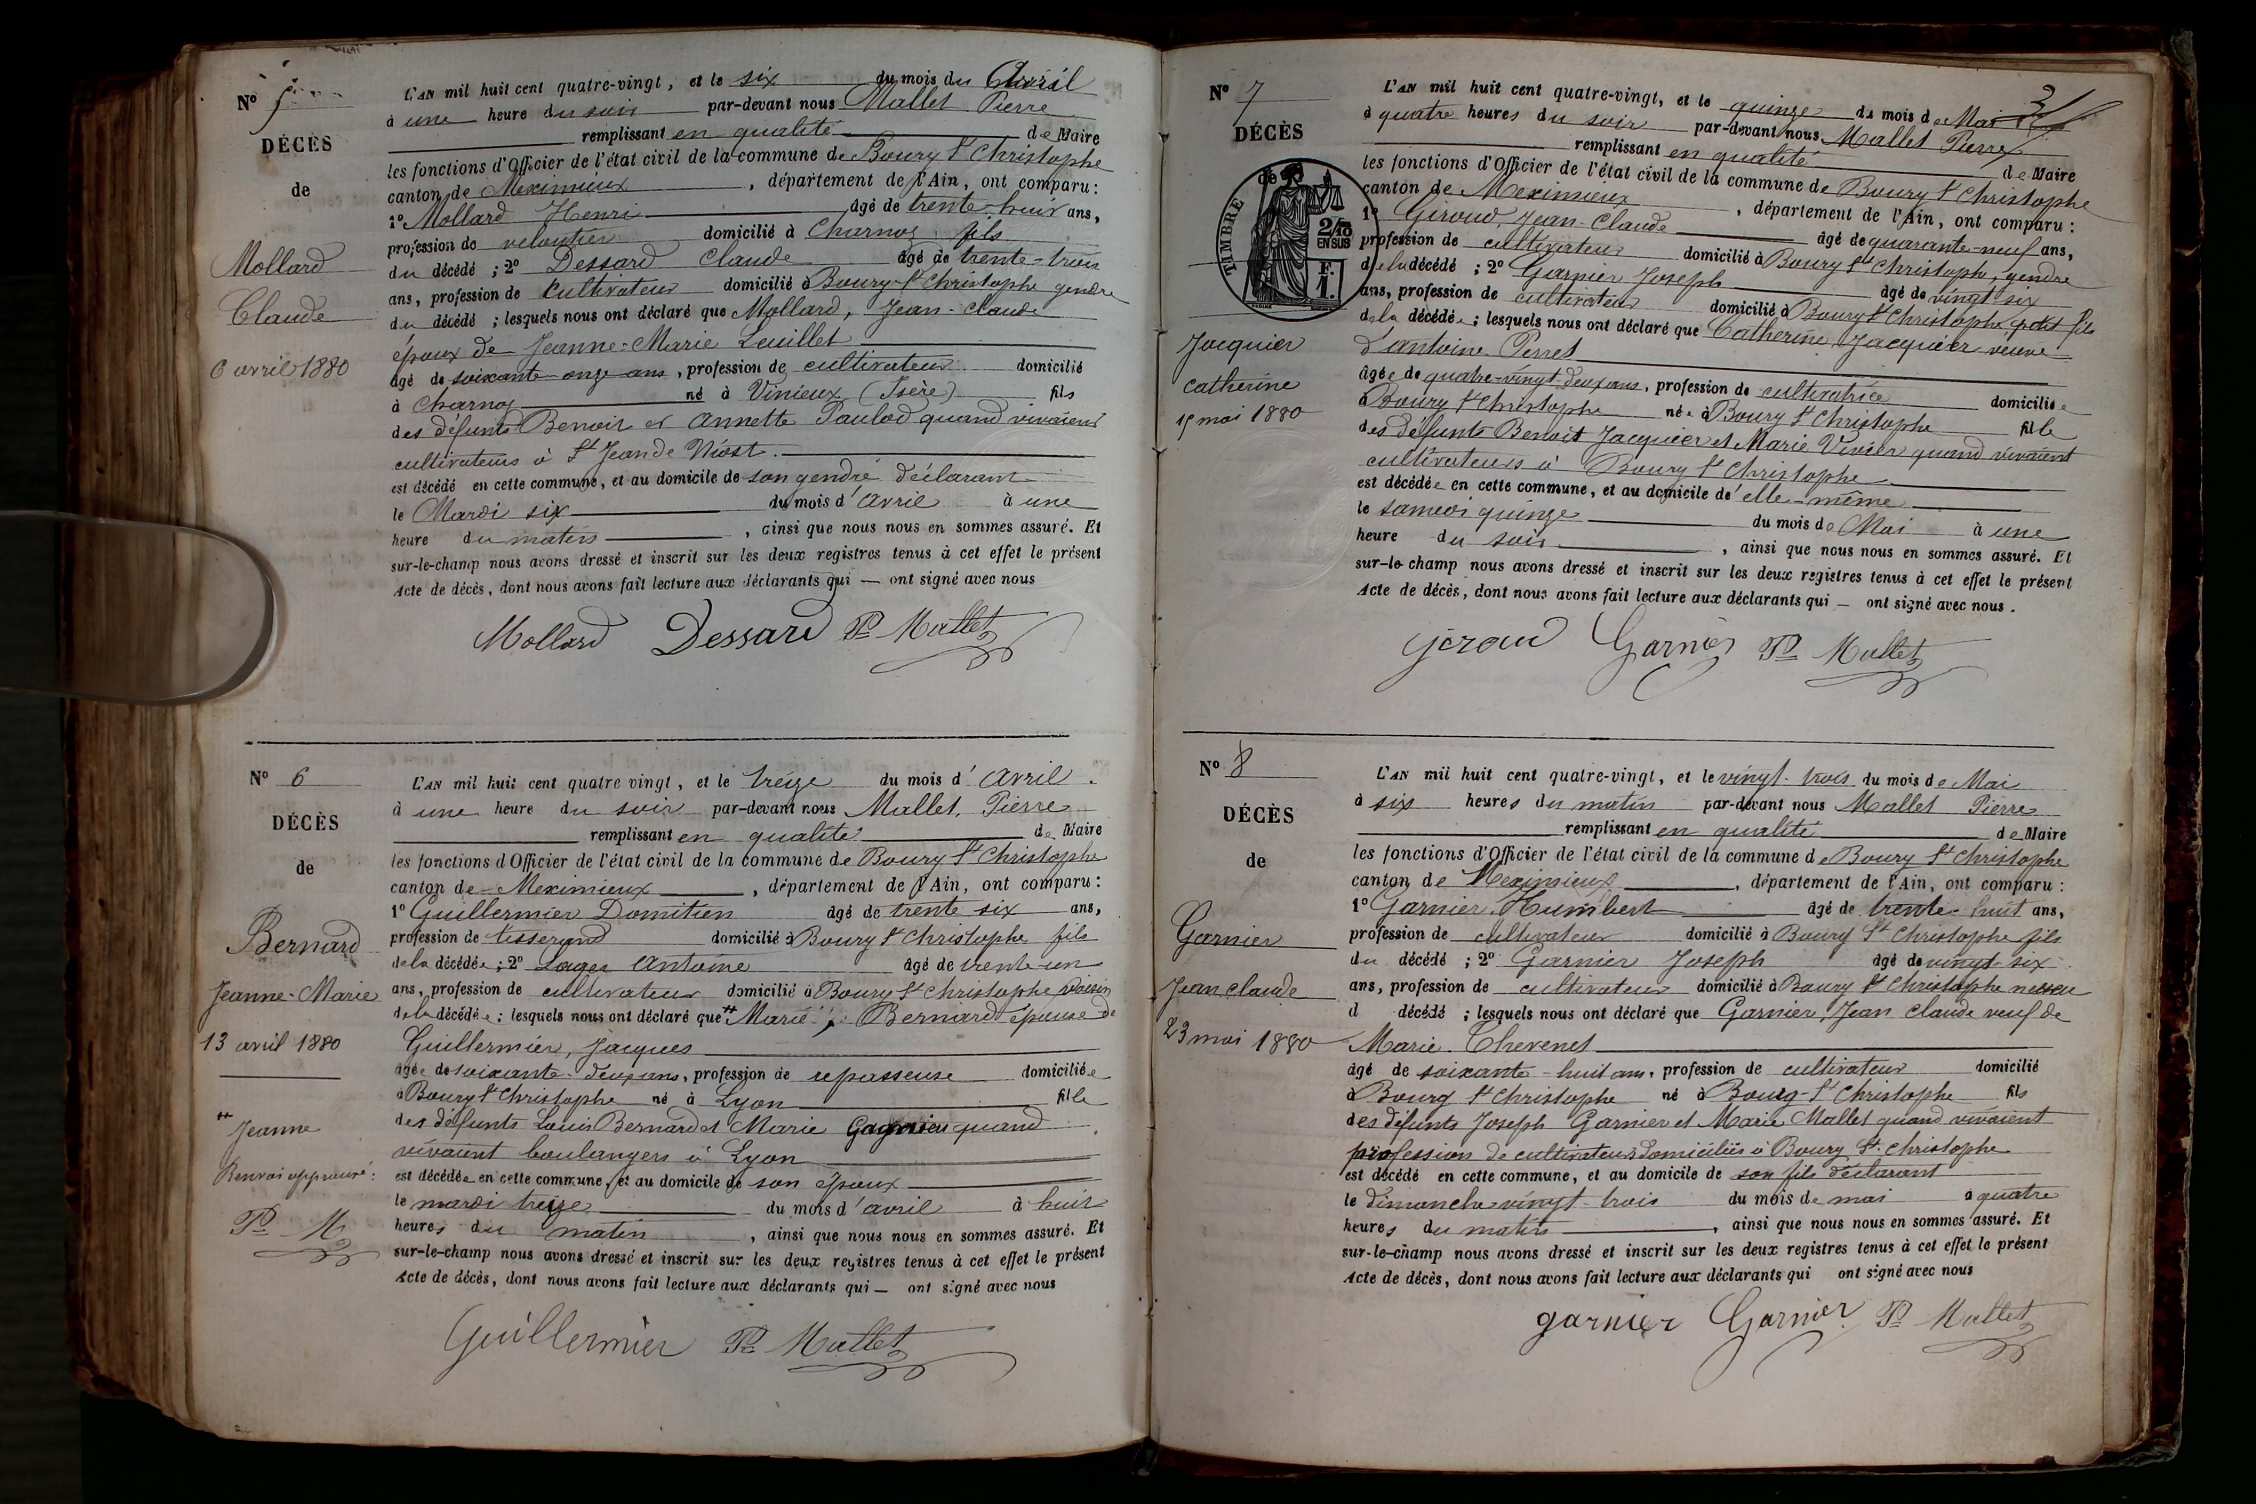 N° 5
DÉCÈS
de
Mollard
Claude
6 avril 1880
L'AN mil huit cent quatre-vingt, et le six du mois du Avril
à une heure du soir par-devant nous Mallet Pierre
remplissant en qualité de Maire
les fonctions d'Officier de l'état civil de la commune de Bourg St Christophe
canton de Meximieux, département de l'Ain, ont comparu :
1° Mollard Henri âgé de trente-huit ans,
profession de veloutier domicilié à Charnoz fils
du décédé ; 2° Dessard Claude âgé de trente-trois
ans, profession de cultivateur domicilié à Bourg-St Christophe gendre
du décédé ; lesquels nous ont déclaré que Mollard, Jean-Claude
époux de Jeanne-Marie Leuillet
âgé de soixante onze ans, profession de cultivateur domicilié
à Charnoz né à Vinieux (Isère) fils
des défunts Benoit et Annette Paulod quand vivaient
cultivateurs à St Jean de Niost.
est décédé en cette commune, et au domicile de son gendre déclarant
le Mardi six du mois d'avril à une
heure du matin, ainsi que nous nous en sommes assuré. Et
sur-le-champ nous avons dressé et inscrit sur les deux registres tenus à cet effet le présent
Acte de décès, dont nous avons fait lecture aux déclarants qui — ont signé avec nous
Mollard Dessard Pre Mallet
N° 6
DÉCÈS
de
Bernard
Jeanne-Marie
13 avril 1880
++ Jeanne
Renvoi approuvé :
Pre M
L'AN mil huit cent quatre vingt, et le treize du mois d'avril.
à une heure du soir par-devant nous Mallet, Pierre
remplissant en qualité de Maire
les fonctions d'Officier de l'état civil de la commune de Bourg St Christophe
canton de Meximieux, département de l'Ain, ont comparu :
1° Guillermier Domitien âgé de trente six ans,
profession de tisserand domicilié à Bourg St Christophe fils
de la décédée ; 2° Lager Antoine âgé de trente-un
ans, profession de cultivateur domicilié à Bourg St Christophe voisin
de la décédée ; lesquels nous ont déclaré que ++ Marie, Bernard épouse de
Guillermier, Jacques
âgée de soixante-deux ans, profession de repasseuse domiciliée
à Bourg St Christophe né à Lyon fille
des défunts Louis Bernard et Marie Gagnieu quand
vivaient boulangers à Lyon
est décédée en cette commune, et au domicile de son époux
le mardi treize du mois d'avril à huit
heures du matin, ainsi que nous nous en sommes assuré. Et
sur-le-champ nous avons dressé et inscrit sur les deux registres tenus à cet effet le présent
Acte de décès, dont nous avons fait lecture aux déclarants qui — ont signé avec nous
Guillermier Pre Mallet
N° 7
DÉCÈS
de
TIMBRE
2/10
EN SUS
F.
1.
Jacquier
Catherine
15 mai 1880
L'AN mil huit cent quatre-vingt, et le quinze du mois de Mai
à quatre heures du soir par-devant nous Mallet Pierre
remplissant en qualité de Maire
les fonctions d'Officier de l'état civil de la commune de Bourg St Christophe
canton de Meximieux, département de l'Ain, ont comparu :
1° Giroud, Jean-Claude âgé de quarante-neuf ans,
profession de cultivateur domicilié à Bourg St Christophe, gendre
de la décédé ; 2° Garnier Joseph âgé de vingt six
ans, profession de cultivateur domicilié à Bourg St Christophe, petit fils
de la décédée ; lesquels nous ont déclaré que Catherine Jacquier veuve
d'antoine Perret
âgée de quatre-vingt-deux ans, profession de cultivatrice domiciliée
à Bourg St Christophe née à Bourg St Christophe fille
des défunts Benoit Jacquier et Marie Vivier quand vivaient
cultivateurs à Bourg St Christophe
est décédée en cette commune, et au domicile d'elle-même
le samedi quinze du mois de Mai à une
heure du soir, ainsi que nous nous en sommes assuré. Et
sur-le-champ nous avons dressé et inscrit sur les deux registres tenus à cet effet le présent
Acte de décès, dont nous avons fait lecture aux déclarants qui — ont signé avec nous.
Geroud Garnier Pre Mallet
N° 8
DÉCÈS
de
Garnier
Jean claude
23 mai 1880
L'AN mil huit cent quatre-vingt, et le vingt-trois du mois de Mai
à six heures du matin par-devant nous Mallet Pierre
remplissant en qualité de Maire
les fonctions d'Officier de l'état civil de la commune de Bourg St Christophe
canton de Meximieux, département de l'Ain, ont comparu :
1° Garnier, Humbert âgé de trente-huit ans,
profession de cultivateur domicilié à Bourg St Christophe fils
du décédé ; 2° Garnier Joseph âgé de vingt six
ans, profession de cultivateur domicilié à Bourg St Christophe neveu
d décédé ; lesquels nous ont déclaré que Garnier, Jean Claude veuf de
Marie Thevenet
âgé de soixante-huit ans, profession de cultivateur domicilié
à Bourg St Christophe né à Bourg-St Christophe fils
des défunts Joseph Garnier et Marie Mallet quand vivaient
profession de cultivateurs domiciliés à Bourg St Christophe
est décédé en cette commune, et au domicile de son fils déclarant
le dimanche vingt-trois du mois de mai à quatre
heures du matin, ainsi que nous nous en sommes assuré. Et
sur-le-champ nous avons dressé et inscrit sur les deux registres tenus à cet effet le présent
Acte de décès, dont nous avons fait lecture aux déclarants qui ont signé avec nous
garnier Garnier Pre Mallet